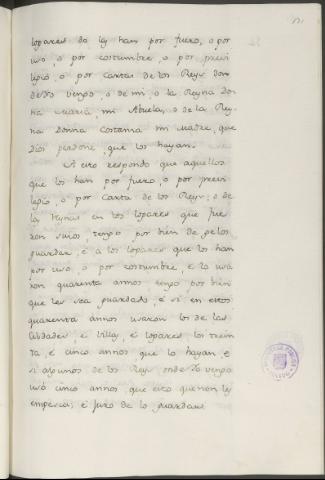 lopares do ley han por fuero, o por
uso, o por costumbre, o por previ
legio, o por Cartas de los Reyes don
de Yo vengo, o de mi, o la Reyna Do
na Maria, mi Abuela, o de la Rey
na Donna Costanza mi Madre, que
Dios perdone, que los hayan.
A esto respondo que aquellos
que los han por fuero, o por previ
legio, o por Carta de los Reyes, o de
las Reynas en los logares que fue
ron suios, tengo por bien de gelos
guardar, e a los logares que los han
por uso, o por costumbre, e lo usa
ron quarenta annos, tengo por bien
que les sea guardado, e si en estos
quarenta annos usaron los de las
Cibdades, e Villas, e logares los trein
ta, e cinco annos que lo hayan, e
si algunos de los Reyes onde Yo vengo
usó cinco annos que esto que non les
empesca; e juro de lo guardar